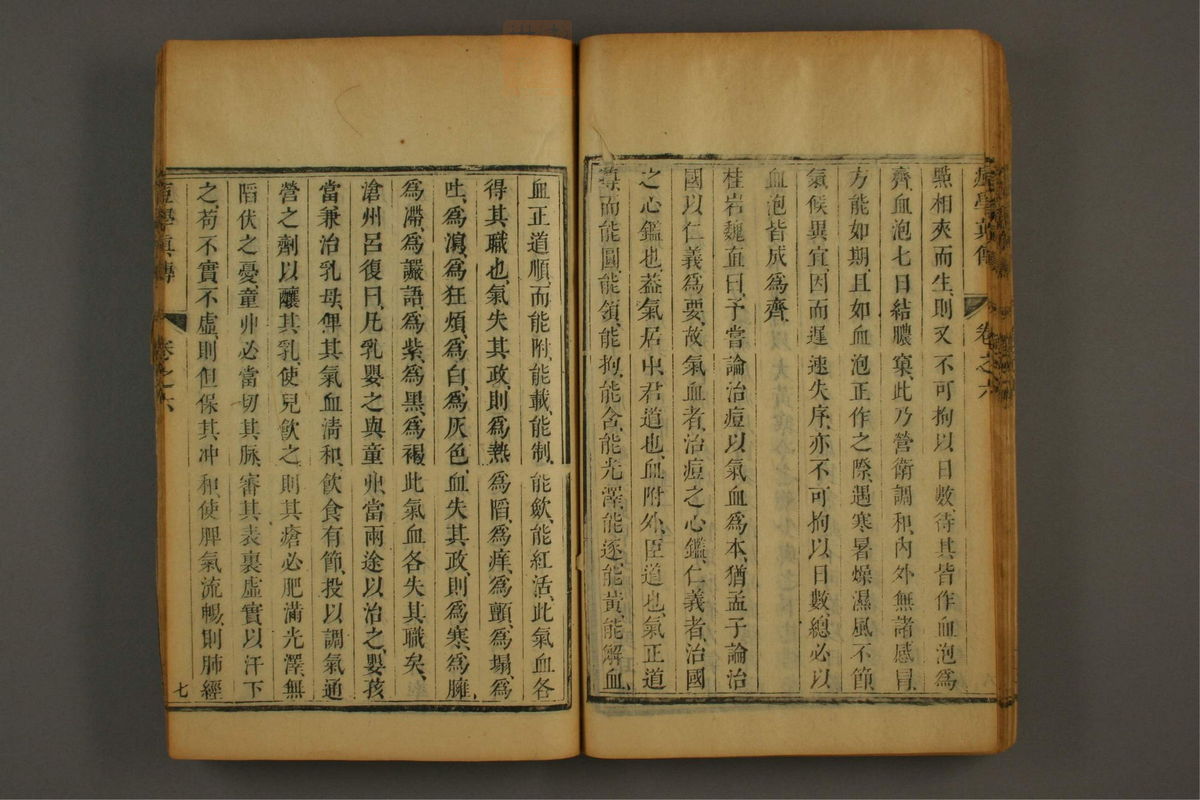 痘學真傳 卷之六
點相夾而生則又不可拘以日數待其皆作血泡為
齊血泡七日結膿窠此乃營衛調和內外無諸感冒
方能如期且如血泡正作之際遇寒暑燥濕風不節
氣候異宜因而遲速失序亦不可拘以日數總必以
血泡皆成為齊
桂岩魏直曰予嘗論治痘以氣血為本猶孟子論治
國以仁義為要故氣血者治痘之心鑑仁義者治國
之心鑑也葢氣居中君道也血附外臣道也氣正道
尊而能圓能領能拘能含能光澤能逐能黃能解血
血正道順而能附能載能制能歛能紅活此氣血各
得其職也氣失其政則為熱為陷為痒為顫為塌為
吐為瀉為狂煩為白為灰色血失其政則為寒為癰
為滯為讝語為紫為黑為褐此氣血各失其職矣
滄州呂復曰凡乳嬰之與童丱當兩途以治之嬰孩
當兼治乳母俾其氣血清和飲食有節投以調氣通
營之劑以釀其乳使兒飲之則其瘡必肥滿光澤無
陷伏之憂童丱必當切其脉審其表裏虛實以汗下
之苟不實不虛則但保其冲和使脾氣流暢則肺經
痘學真傳 卷之六 七